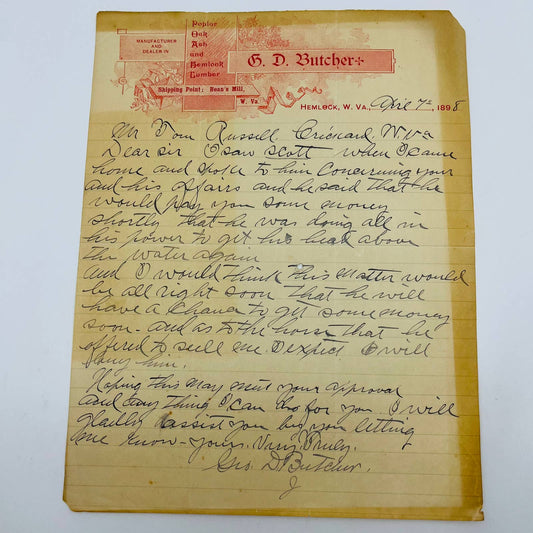 MANUFACTURER
AND
DEALER IN
Poplar
Oak
Ash
and
Hemlock
Lumber
G. D. Butcher
Shipping Point; Bean's Mill,
W. Va.
HEMLOCK, W. VA., April 7th, 1898
Mr Tom Russell. Crickard W Va
Dear sir I saw Scott when I came
home and spoke to him concerning your
and his affairs and he said that he
would pay you some money
shortly that he was doing all in
his power to get his head above
the water again
and I would think this matter would
be all right soon that he will
have a chance to get some money
soon - and as to the horse that he
offered to sell me I expect I will
buy him.
Hoping this may meet your approval
and any thing I can do for you I will
gladly assist you by you letting
me know - yours Very Truly.
Geo. D Butcher.